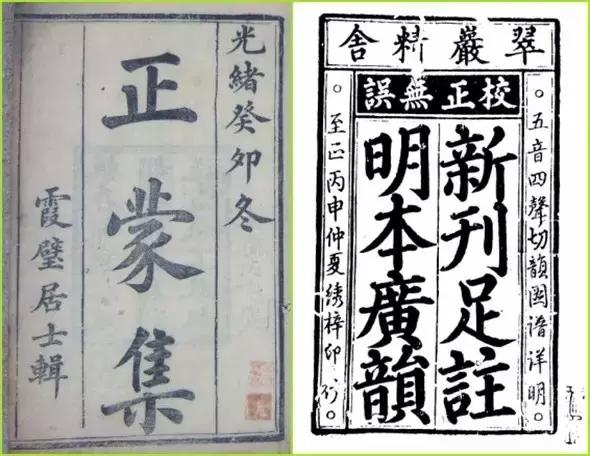 光緒癸卯冬
正蒙集
霞壁居士輯
翠巖精舍
校正無誤
五音四聲切韻圖譜詳明
新刊足註
明本廣韻
至正丙申仲夏綉梓印行